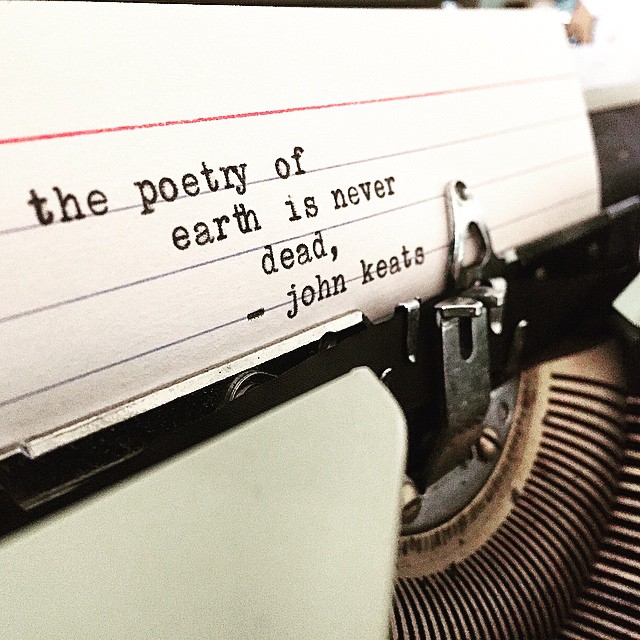 the poetry of
earth is never
dead,
- john keats